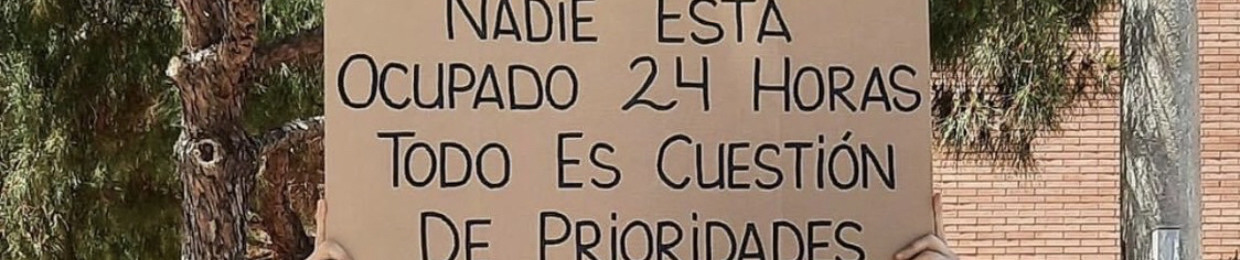 NADIE ESTÁ
OCUPADO 24 HORAS
TODO ES CUESTIÓN
DE PRIORIDADES